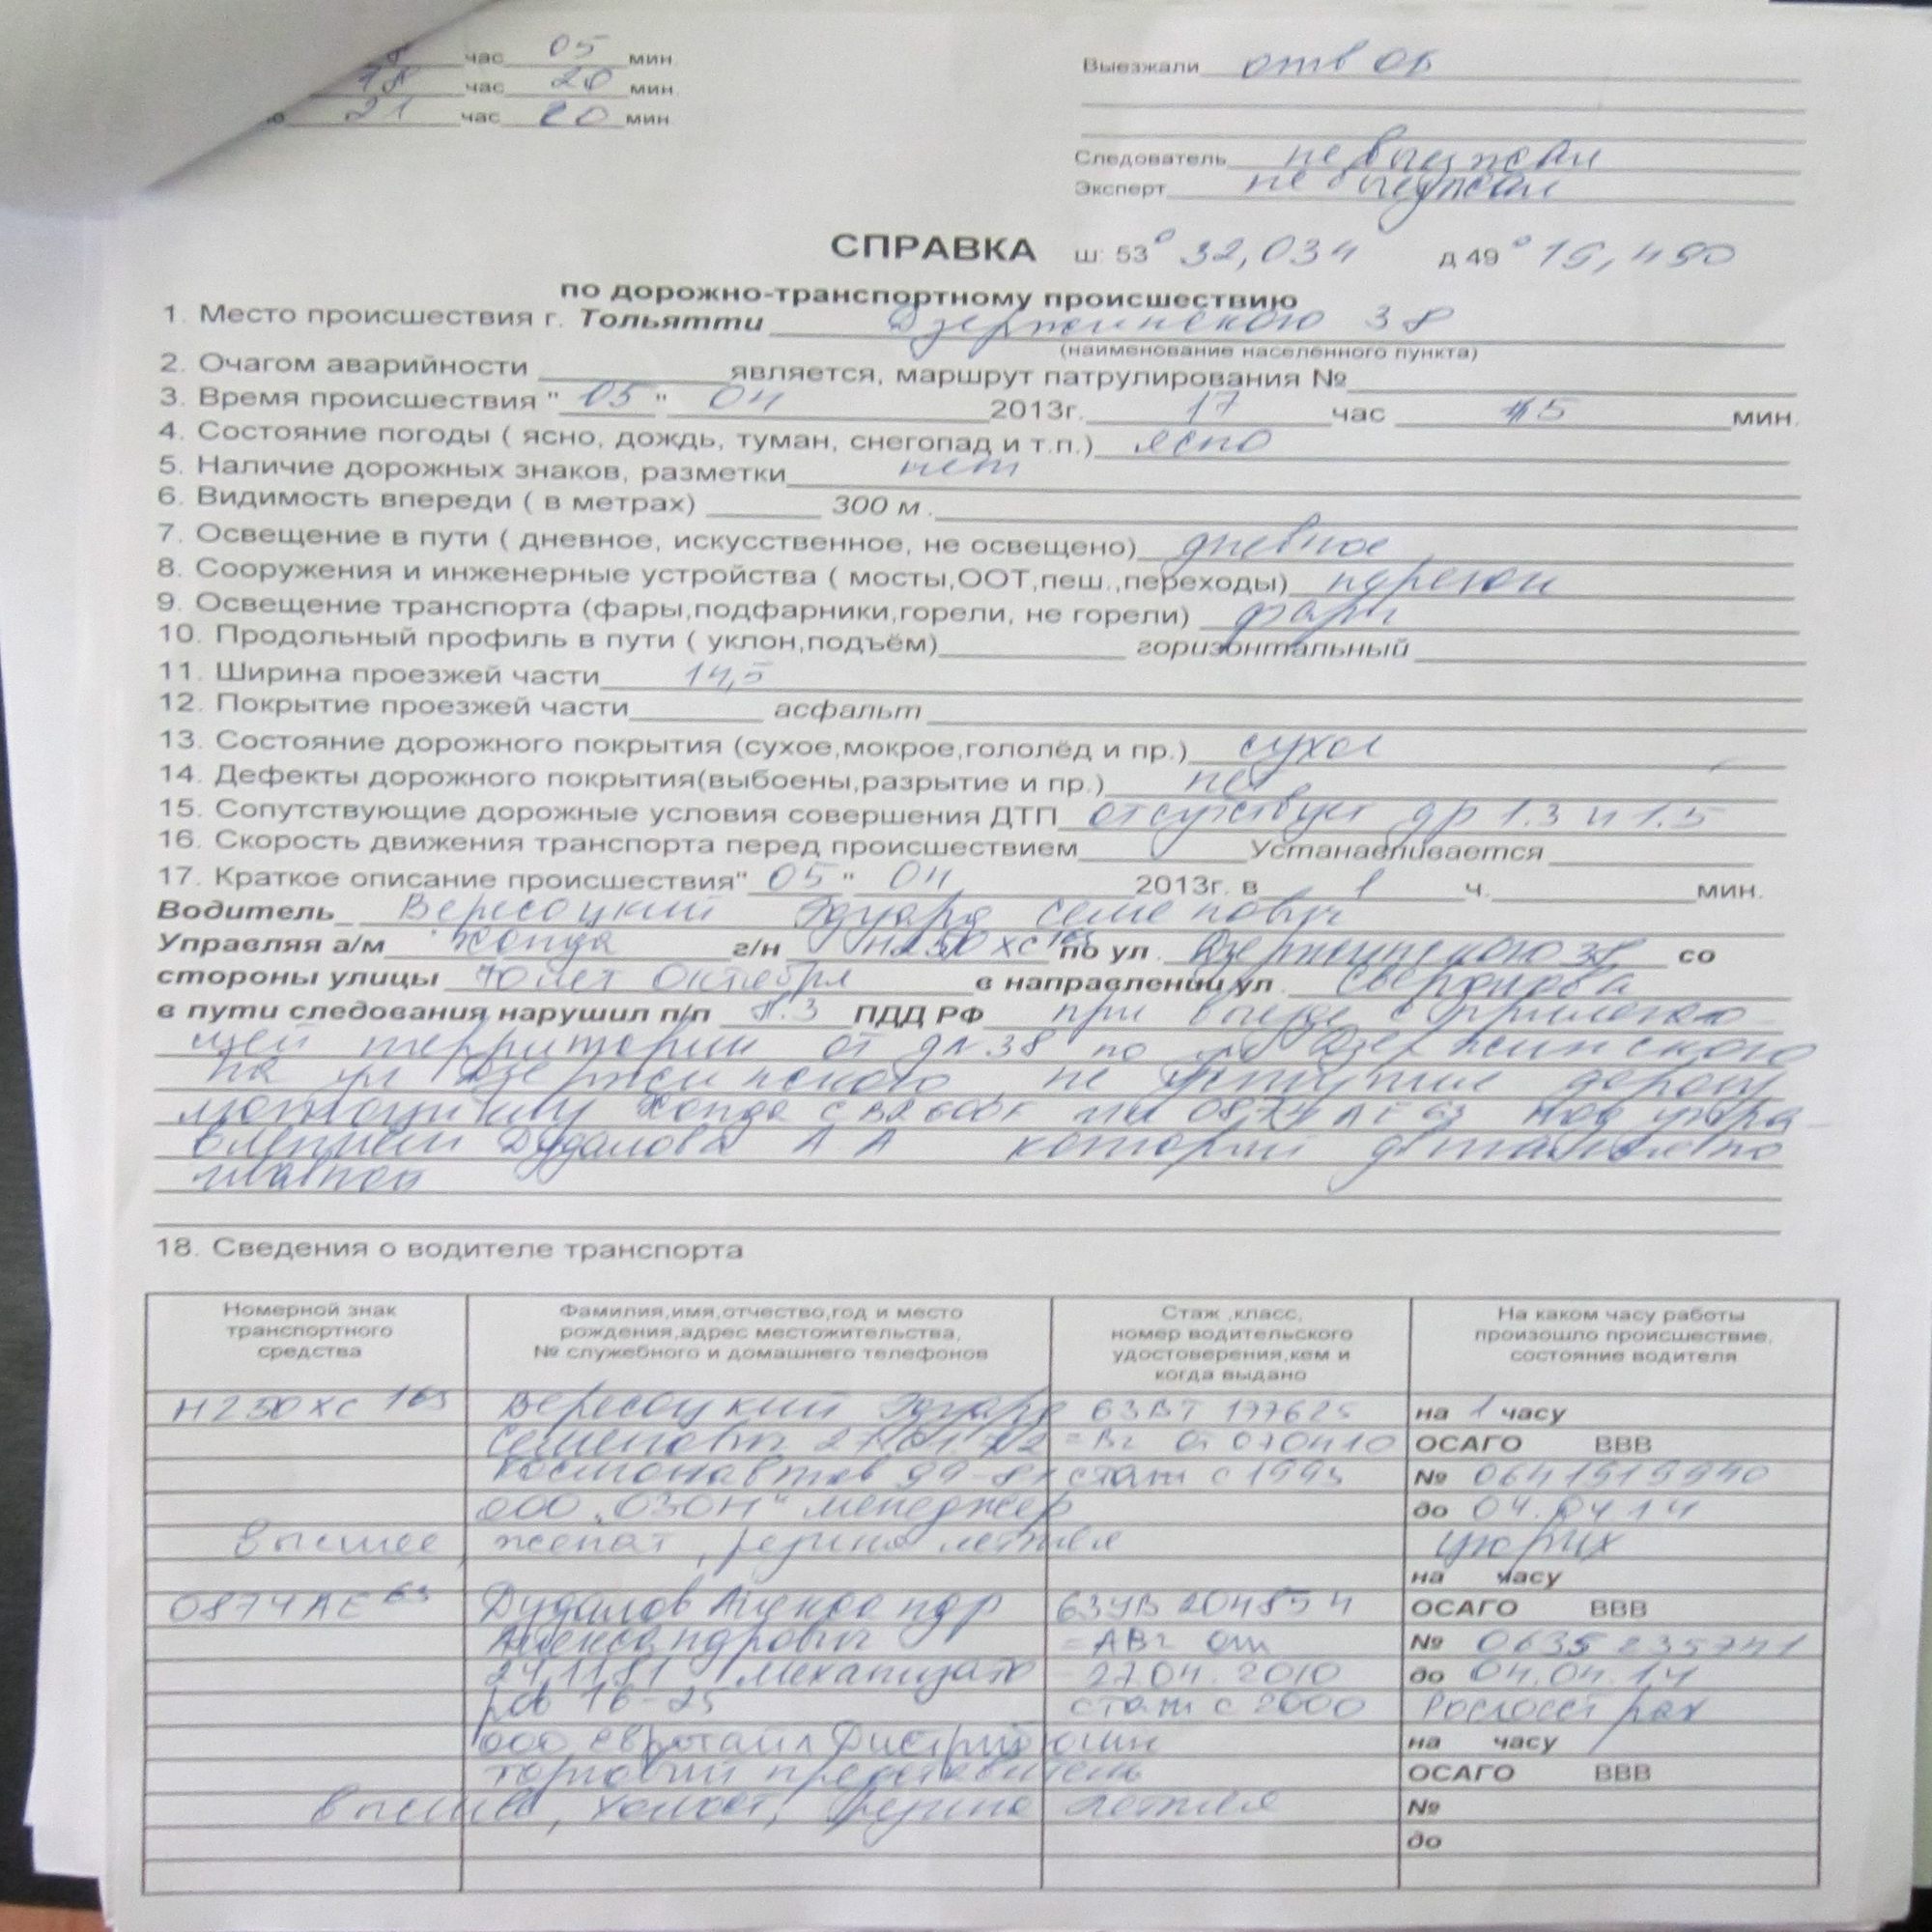 час 05 мин.
18 час 20 мин.
21 час 20 мин.
Выезжали отв ОБ
Следователь не выезжал
Эксперт не выезжал
СПРАВКА ш: 53° 32,034 д 49°
по дорожно-транспортному происшествию
1. Место происшествия г. Тольятти Дзержинского 38
(наименование населённого пункта)
2. Очагом аварийности является, маршрут патрулирования №
3. Время происшествия "05" 04 2013г. 17 час мин.
4. Состояние погоды ( ясно, дождь, туман, снегопад и т.п.) ясно
5. Наличие дорожных знаков, разметки нет
6. Видимость впереди ( в метрах) 300 м .
7. Освещение в пути ( дневное, искусственное, не освещено) дневное
8. Сооружения и инженерные устройства ( мосты,ООТ,пеш.,переходы) перегон
9. Освещение транспорта (фары,подфарники,горели, не горели) фары
10. Продольный профиль в пути ( уклон,подъём) горизонтальный
11. Ширина проезжей части 14,5
12. Покрытие проезжей части асфальт
13. Состояние дорожного покрытия (сухое,мокрое,гололёд и пр.) сухое
14. Дефекты дорожного покрытия(выбоены,разрытие и пр.) нет
15. Сопутствующие дорожные условия совершения ДТП отсутствует др 1.3 и 1.5
16. Скорость движения транспорта перед происшествием Устанавливается
17. Краткое описание происшествия "05" 04 2013г. в ч. мин.
Водитель Вересоцкий Эдуард Семенович
Управляя а/м Хонда г/н Н250ХС163 по ул . Дзержинского 38 со
стороны улицы 40 лет Октября в направлении ул . Свердлова
в пути следования нарушил п/п 8.3 ПДД РФ при выезде с прилегаю
щей территории от д№38 по ул Дзержинского
на ул Дзержинского, не уступил дорогу
мотоциклу Хонда 0874АЕ63 под упра-
влением Дудалова А А который двигался по
главной
18. Сведения о водителе транспорта
Номерной знак транспортного средства
Фамилия,имя,отчество,год и место рождения,адрес местожительства, № служебного и домашнего телефонов
Стаж ,класс, номер водительского удостоверения,кем и когда выдано
На каком часу работы произошло происшествие, состояние водителя
Н250ХС 163 Вересоцкий Эдуард 63ВТ 177625 на 1 часу
Семенович =Вг от 070410 ОСАГО ВВВ
Космонавтов стаж с № 0641919940
ООО "ОЗОН" менеджер до 04.04.14
высшее, женат, резина летняя Цюрих
на часу
0874АЕ 63 Дудалов Александр 63УВ 204854 ОСАГО ВВВ
Александрович =АВг от № 0635235741
24.11.81 механизато 27.04.2010 до 04.04.14
ров 16-25 стаж с 2000 Росгосстрах
ООО Дистрибюшн на часу
торговый представитель ОСАГО ВВВ
высшее, холост, резина летняя №
до